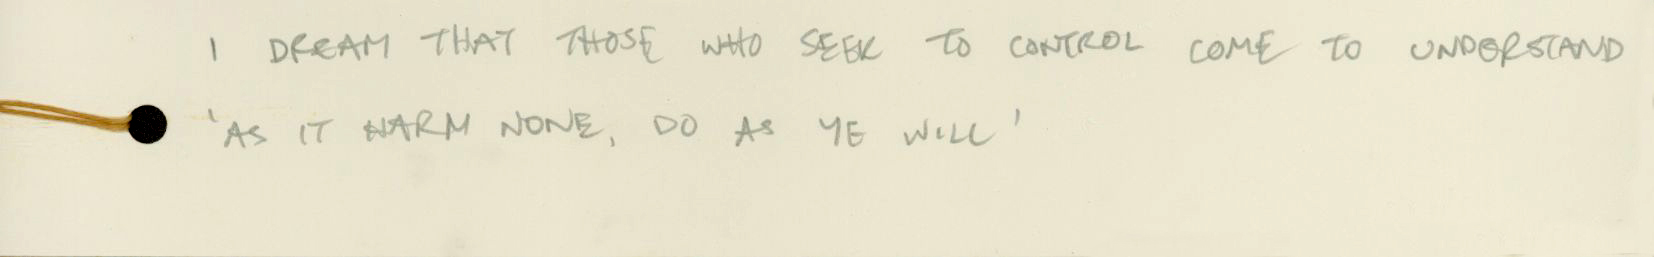 I DREAM THAT THOSE WHO SEEK TO CONTROL COME TO UNDERSTAND
'AS IT HARM NONE, DO AS YE WILL'